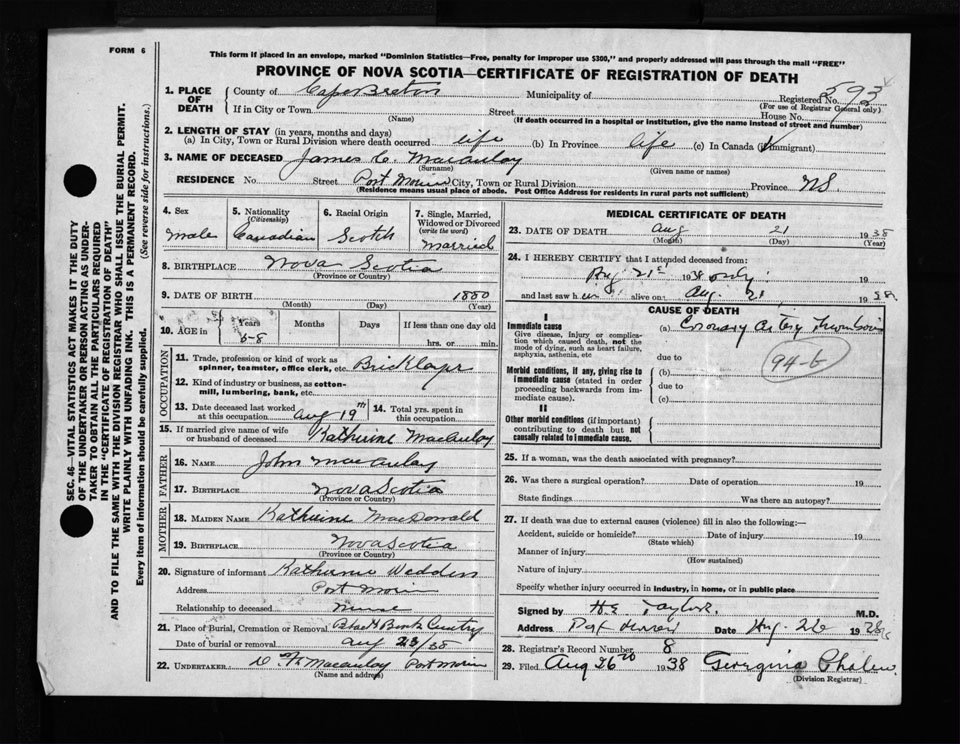 FORM 6
This form if placed in an envelope, marked "Dominion Statistics—Free, penalty for improper use $300," and properly addressed will pass through the mail "FREE"
PROVINCE OF NOVA SCOTIA—CERTIFICATE OF REGISTRATION OF DEATH
1. PLACE OF DEATH
County of Cape Breton Municipality of Registered No. 593
(For use of Registrar General only)
If in City or Town Street House No.
(Name) (If death occurred in a hospital or institution, give the name instead of street and number)
2. LENGTH OF STAY (in years, months and days)
(a) In City, Town or Rural Division where death occurred life (b) In Province life (c) In Canada (if immigrant)
3. NAME OF DECEASED James C. Macaulay
(Surname) (Given name or names)
RESIDENCE No. Street Port Morien City, Town or Rural Division Province NS
(Residence means usual place of abode. Post Office Address for residents in rural parts not sufficient)
4. Sex Male
5. Nationality (Citizenship) Canadian
6. Racial Origin Scotch
7. Single, Married, Widowed or Divorced (write the word) Married
8. BIRTHPLACE Nova Scotia
(Province or Country)
9. DATE OF BIRTH 1880
(Month) (Day) (Year)
10. AGE in Years Months Days If less than one day old
58 hrs. or min.
OCCUPATION
11. Trade, profession or kind of work as spinner, teamster, office clerk, etc. Bricklayer
12. Kind of industry or business, as cotton-mill, lumbering, bank, etc.
13. Date deceased last worked at this occupation Aug 19th
14. Total yrs. spent in this occupation
15. If married give name of wife or husband of deceased Katherine MacAulay
FATHER
16. NAME John MacAulay
17. BIRTHPLACE Nova Scotia
(Province or Country)
MOTHER
18. MAIDEN NAME Katherine MacDonald
19. BIRTHPLACE Nova Scotia
(Province or Country)
20. Signature of informant Katherine
Address Port Morien
Relationship to deceased
21. Place of Burial, Cremation or Removal
Date of burial or removal Aug 23/38
22. UNDERTAKER Macaulay Port Morien
(Name and address)
MEDICAL CERTIFICATE OF DEATH
23. DATE OF DEATH Aug 21 1938
(Month) (Day) (Year)
24. I HEREBY CERTIFY that I attended deceased from:
Aug 21st 1938 only
and last saw him alive on Aug. 21 1938
CAUSE OF DEATH
I
Immediate cause
Give disease, injury or complication which caused death, not the mode of dying, such as heart failure, asphyxia, asthenia, etc
(a) Coronary Artery Thrombosis
due to
94-b
Morbid conditions, if any, giving rise to immediate cause (stated in order proceeding backwards from immediate cause).
(b)
due to
(c)
II
Other morbid conditions (if important) contributing to death but not causally related to immediate cause.
25. If a woman, was the death associated with pregnancy?
26. Was there a surgical operation? Date of operation 19
State findings Was there an autopsy?
27. If death was due to external causes (violence) fill in also the following:—
Accident, suicide or homicide? Date of injury 19
(State which)
Manner of injury
(How sustained)
Nature of injury
Specify whether injury occurred in Industry, in home, or in public place
Signed by H.E. Taylor M.D.
Address Port Morien Date Aug. 26 1938
28. Registrar's Record Number 8
29. Filed Aug 26th 1938 Georgina
(Division Registrar)
SEC. 46—VITAL STATISTICS ACT MAKES IT THE DUTY
OF THE UNDERTAKER OR PERSON ACTING AS UNDER-
TAKER TO OBTAIN ALL THE PARTICULARS REQUIRED
IN THE "CERTIFICATE OF REGISTRATION OF DEATH"
AND TO FILE THE SAME WITH THE DIVISION REGISTRAR WHO SHALL ISSUE THE BURIAL PERMIT.
WRITE PLAINLY WITH UNFADING INK. THIS IS A PERMANENT RECORD.
Every item of information should be carefully supplied. (See reverse side for instructions.)